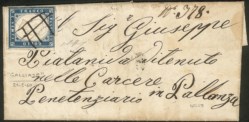 N. 378.
Al Sig.r Giuseppe
Piatanida ditenuto
nelle Carcere
Penetenziario in Pallanza